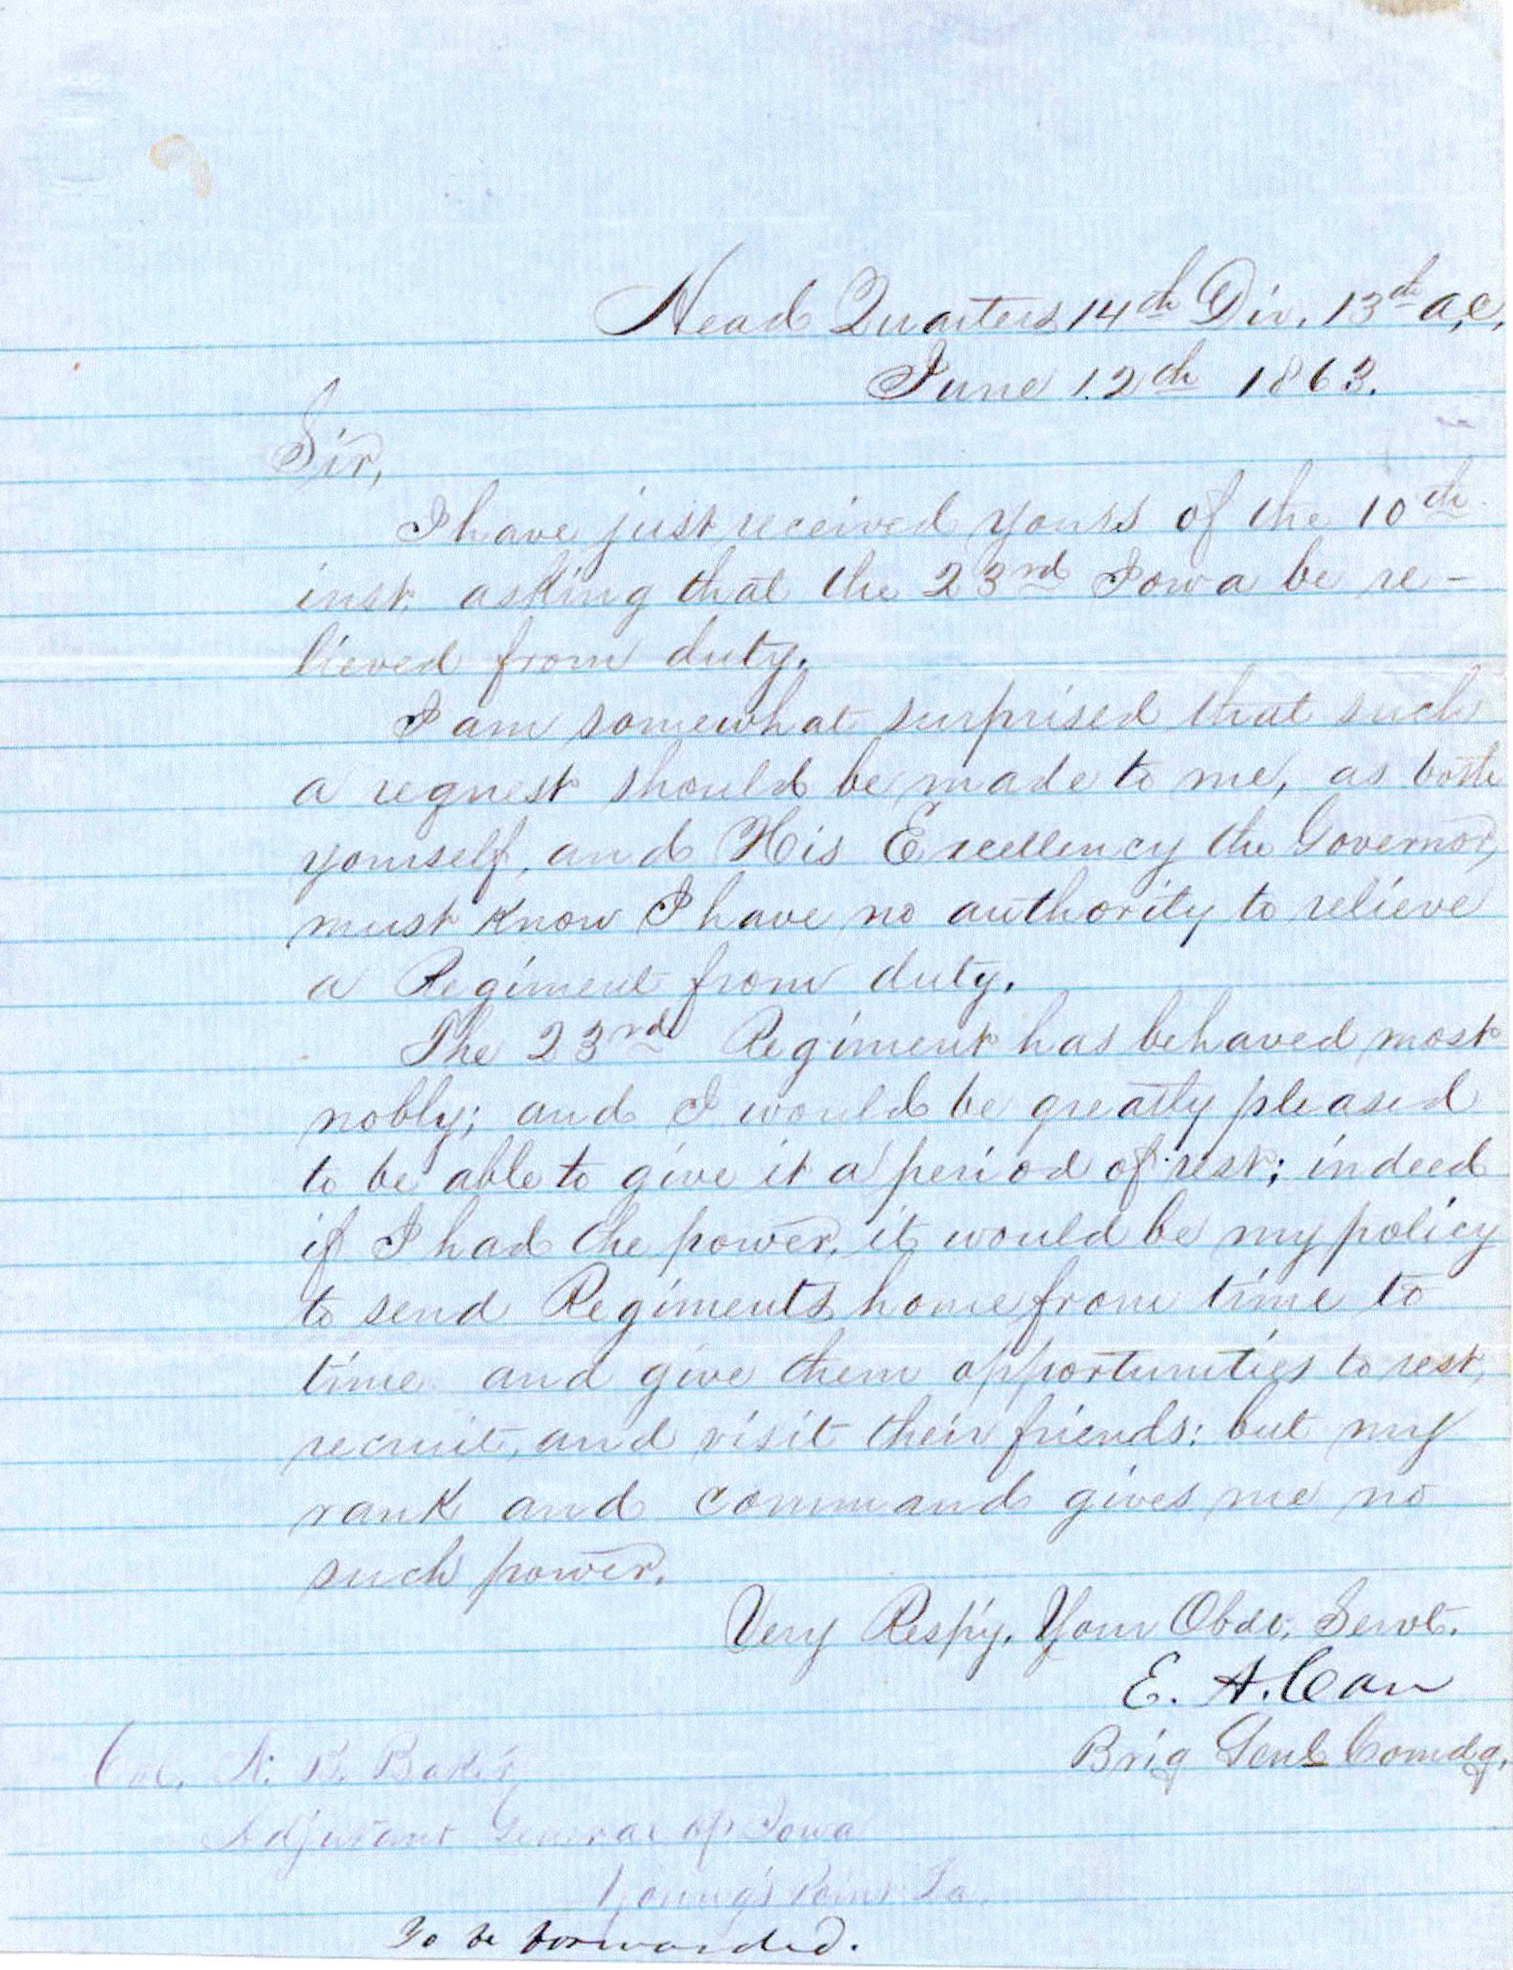 Head Quarters 14th Div. 13th A.C.
June 12th 1863.
Sir,
I have just received yours of the 10th
inst. asking that the 23rd Iowa be re-
lieved from duty.
I am somewhat surprised that such
a request should be made to me, as both
yourself, and His Excellency the Governor,
must know I have no authority to relieve
a Regiment from duty.
The 23rd Regiment has behaved most
nobly; and I would be greatly pleased
to be able to give it a period of rest; indeed
if I had the power, it would be my policy
to send Regiments home from time to
time and give them opportunities to rest,
recruit, and visit their friends: but my
rank and command gives me no
such power.
Very Respy. Your Obdt. Servt.
E. A. Carr
Brig Genl Comdg.
Col. N. B. Baker,
Adjutant General of Iowa
Young's Point La.
To be forwarded.